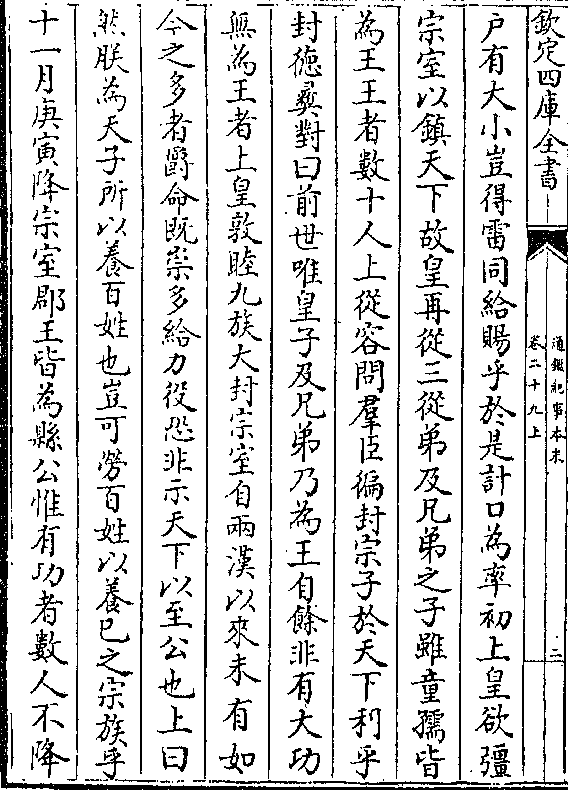 欽定四庫全書
通鑑紀事本末
卷二十九上
二
户有大小豈得雷同給賜乎於是計口為率初上皇欲彊
宗室以鎮天下故皇再從三從弟及兄弟之子雖童孺皆
為王王者數十人上從容問羣臣徧封宗子於天下利乎
封徳彞對曰前世唯皇子及兄弟乃為王自餘非有大功
無為王者上皇敦睦九族大封宗室自兩漢以來未有如
今之多者爵命既崇多給力役恐非示天下以至公也上曰
然朕為天子所以養百姓也豈可勞百姓以養已之宗族乎
十一月庚寅降宗室郡王皆為縣公惟有功者數人不降